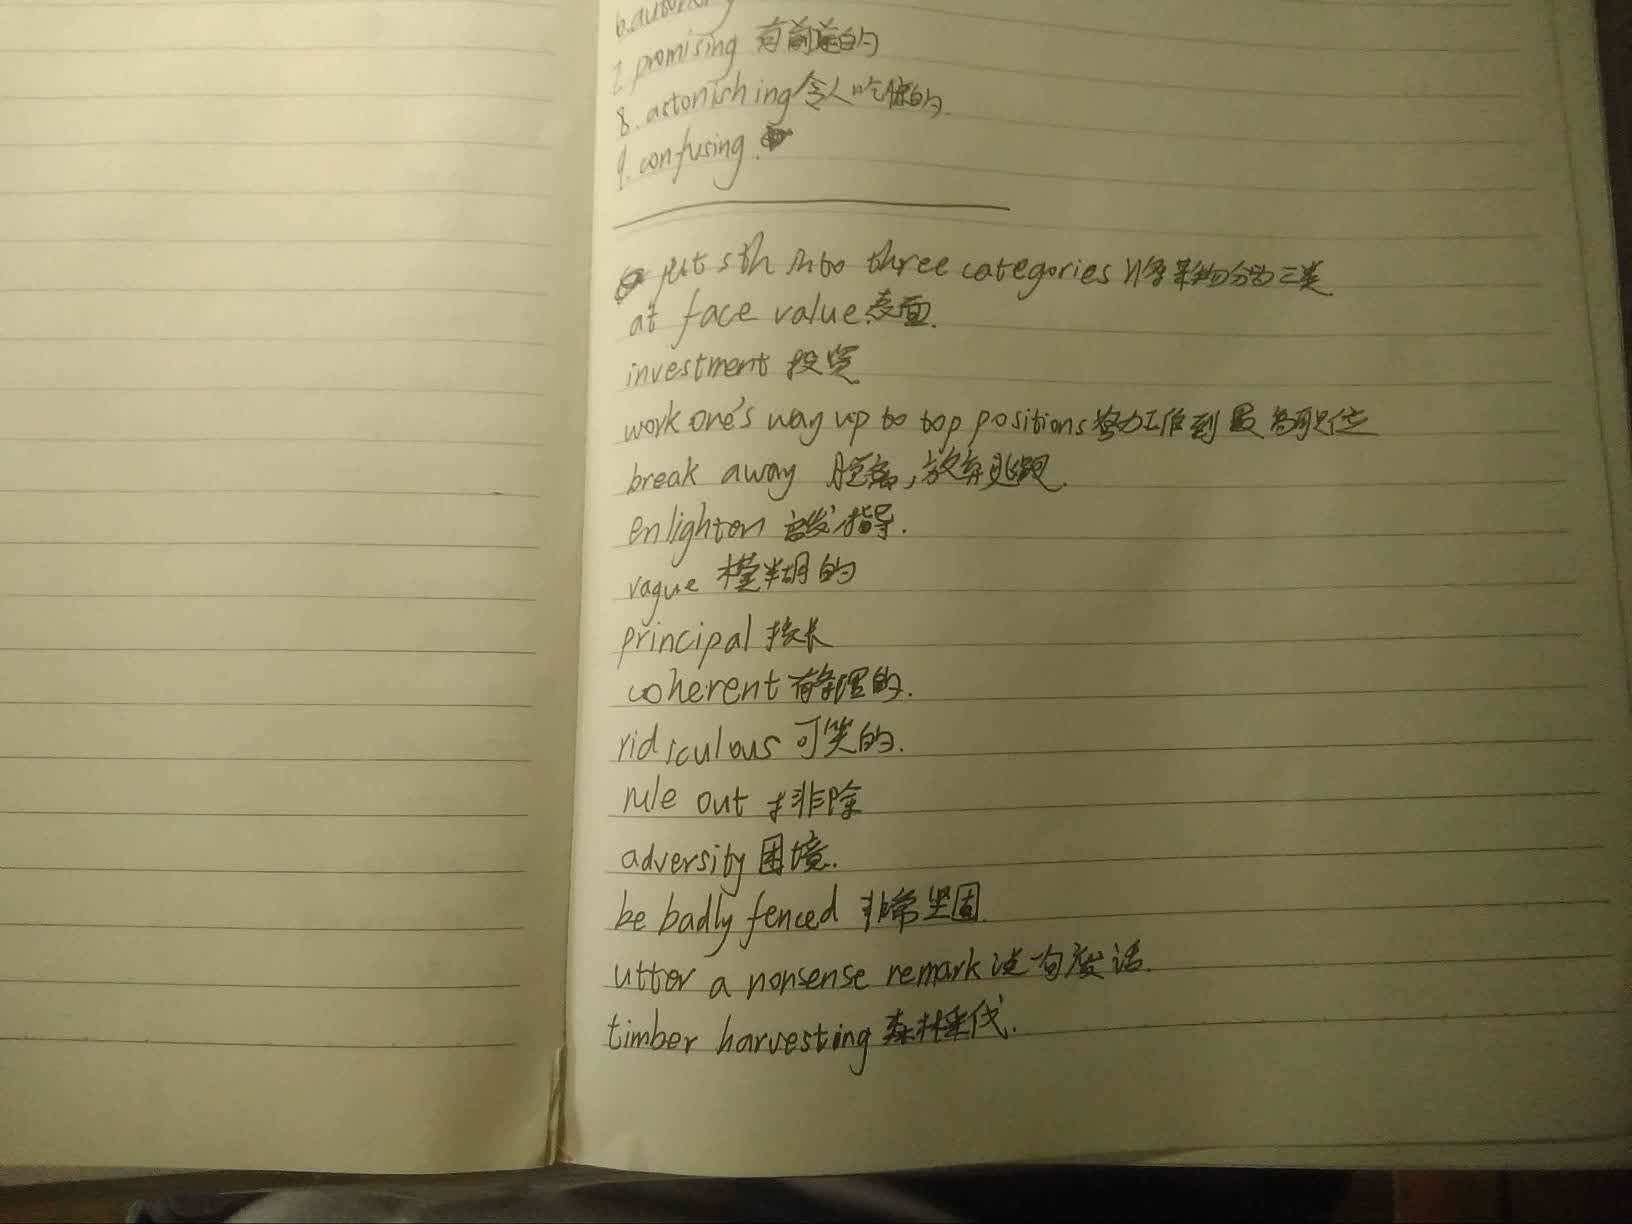 6.
7 promising 有前途的
8. astonishing 令人吃惊的.
9. confusing.
put sth into three categories 将某物分为三类
at face value 表面.
investment 投资
work one's way up to top positions 努力工作到最高职位
break away 脱离,放弃逃跑.
enlighten 启发指导.
vague 模糊的
principal 校长
coherent 有条理的.
ridiculous 可笑的.
rule out 排除
adversity 困境.
be badly fenced 非常坚固.
utter a nonsense remark 说一句废话.
timber harvesting 森林采伐.